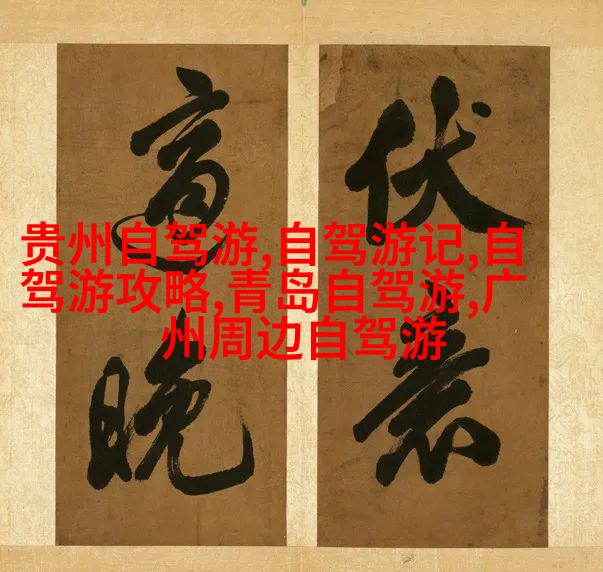 贵州自驾游,自驾游记,自
驾游攻略,青岛自驾游,广
州周边自驾游
伏
晚